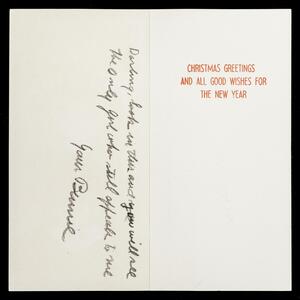 Darling, look in this and you will see
the only girl who still appeals to me
Your Bennie
CHRISTMAS GREETINGS
AND ALL GOOD WISHES FOR
THE NEW YEAR